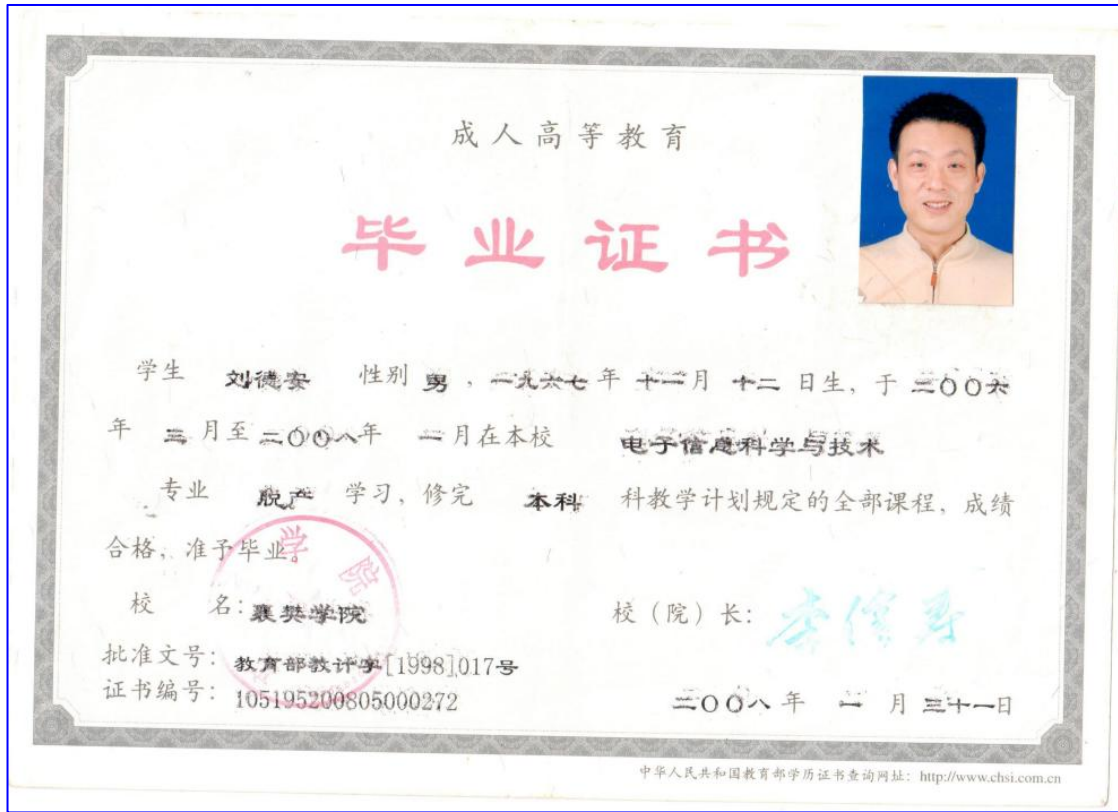 成人高等教育
毕业证书
学生 刘德安 性别 男，一九六七年 十一月 十二 日生，于 二〇〇六
年 三 月至 二〇〇八年 一月在本校 电子信息科学与技术
专业 脱产 学习，修完 本科 科教学计划规定的全部课程，成绩
合格，准予毕业。
学院
校 名：襄樊学院
校（院）长：
批准文号：教育部教计字[1998]017号
证书编号：105195200805000272
二〇〇八年 一 月 三十一日
中华人民共和国教育部学历证书查询网址：http://www.chsi.com.cn